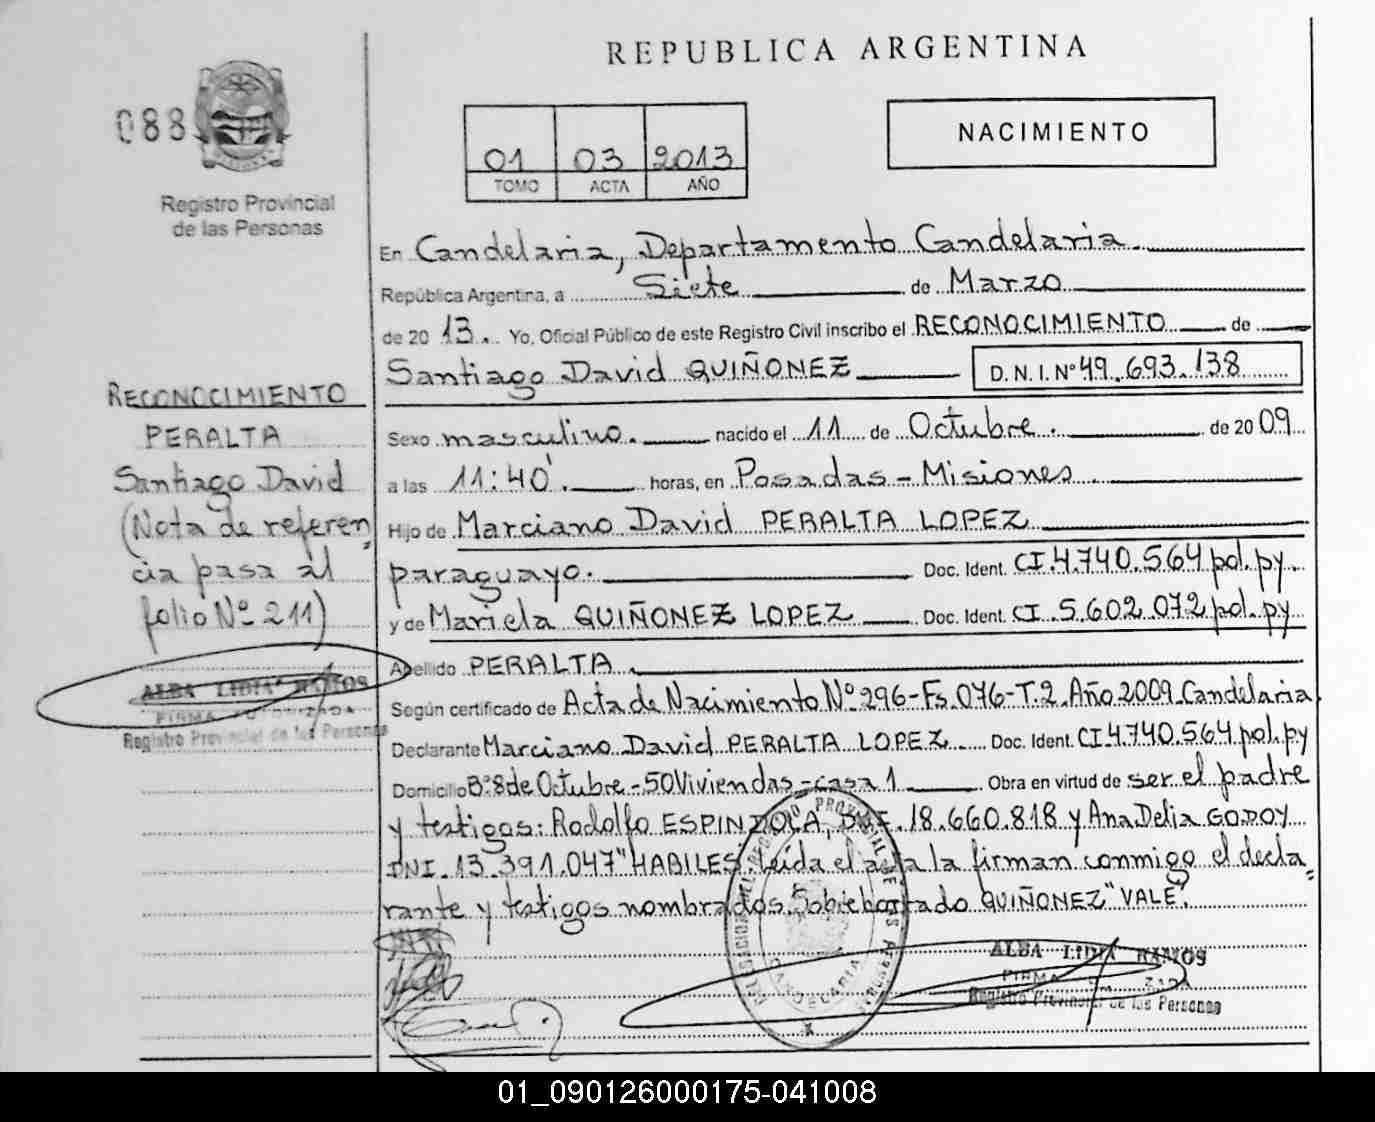 REPUBLICA ARGENTINA
088
01 03 2013
TOMO ACTA AÑO
NACIMIENTO
Registro Provincial
de las Personas
En Candelaria, Departamento Candelaria.
República Argentina, a Siete de Marzo
de 2013. Yo, Oficial Público de este Registro Civil inscribo el RECONOCIMIENTO de
Santiago David QUIÑONEZ D.N.I. Nº 49.693.138
Sexo masculino. nacido el 11 de Octubre. de 2009
a las 11:40'. horas, en Posadas - Misiones.
Hijo de Marciano David PERALTA LOPEZ
paraguayo. Doc. Ident. CI.4.740.564 pol. py.
y de Mariela QUIÑONEZ LOPEZ Doc. Ident. CI.5.602.072 pol. py
Apellido PERALTA.
Según certificado de Acta de Nacimiento Nº 296-Fs.076-T.2.Año 2009.Candelaria.
Declarante Marciano David PERALTA LOPEZ Doc. Ident. CI 4.740.564 pol. py
Domicilio Bº 8 de Octubre - 50 Viviendas - casa 1 Obra en virtud de ser el padre
y testigos: Rodolfo ESPINDOLA, 18.660.818 y Ana Delia GODOY
DNI. 13.391.047 "HABILES" Leída el acta la firman conmigo el decla-
rante y testigos nombrados. Sobreborrado QUIÑONEZ "VALE".
RECONOCIMIENTO
PERALTA
Santiago David
(Nota de referen
cia pasa al
folio Nº 211)
ALBA LIDIA RAMOS
FIRMA AUTORIZADA
Registro Provincial de las Personas
CANDELARIA
ALBA LIDIA RAMOS
FIRMA
Registro Provincial de las Personas
01_090126000175-041008